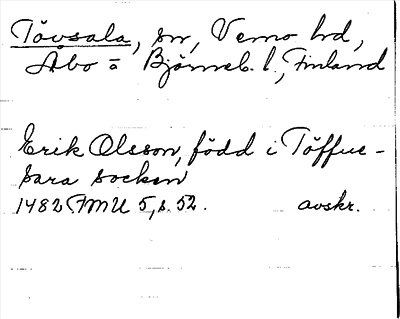 Tövsala, sn, Vemo hrd,
Åbo o Björneb. l., Finland
Erik Olsson, född i Töffue-
sara socken
1482 FMU 5, s. 52. avskr.